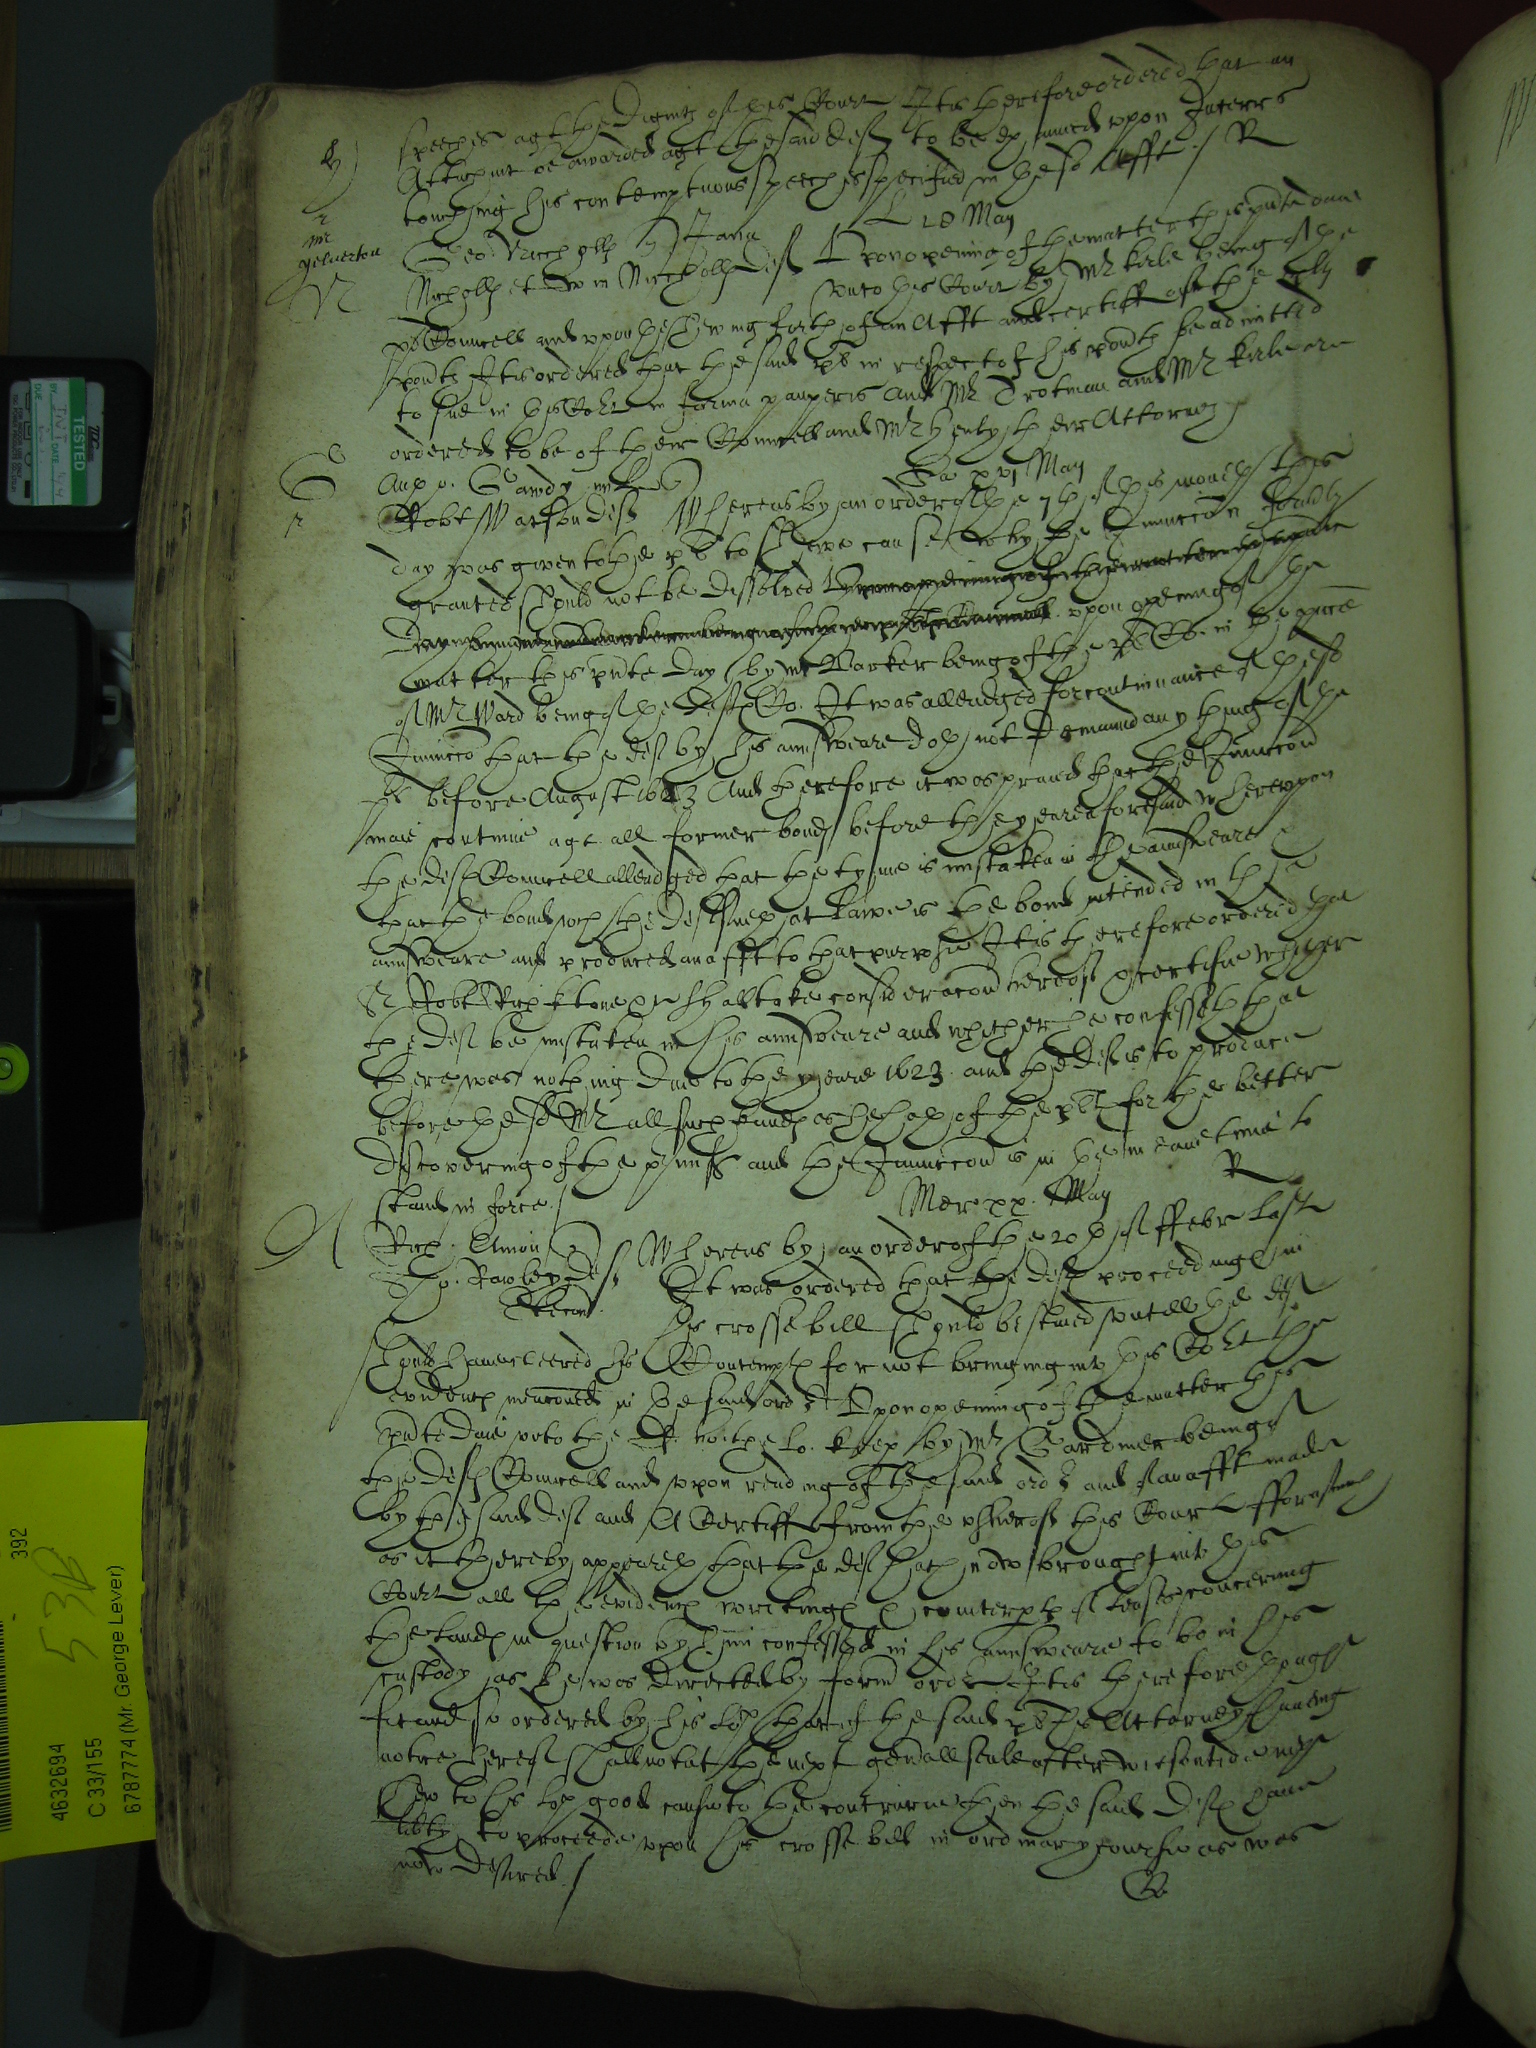 speeches agt the dignity of this Court It is therefore ordered that an
Attachmt be awarded agt the said deft to be examined upon Interrs
touching his contemptuous speeches specified in the sd Afft / R
mr
yelverton
N
L 18 May
Geo: Nicholls
Nicholls et Nicholls deft Upon opening of the matter this pnte daie
unto this Court by Mr Kirle being of the
pls Councell and upon the shewing forth of an Afft and certiff of the pls
povty It is ordered that the said pl in respect of his povty be admitted
to sue in this Cort in forma pauperis and Mr Trotman and Mr Kirle are
ordered to be of their Councell and Mr Henly their Attorney /
G
xvj May
Gawdy
Robt Watson deft Whereas by an order of the 7th of this moneth this
day was given to the pl to shewe cause why the Iniuncion formly
granted should not be dissolved
upon opening of the
matter this pnte day by mr Barker being of the pls Co. in the pnce
of Mr Ward being of the defts Co. It was alleadged for continuance of the sd
Iniuncc that the deft by his answeare doth not demaund any thing of the
pl before August 1623 And therefore it was praied that the Iniuncion
maie continue agt all former bonds before the yeare aforesaid Whereupon
the defts Councell alleadged that the tyme is mistaken in the answeare
that the bond wch the deft sueth at Lawe is the bond intended in the
answeare and produced an afft to that purpose It is therefore ordered that
Sr Robt Rich knt one &c shall take consideracon thereof & certifie whether
the deft be mistaken in his answeare and whether he confesseth that
there was nothing due to the yeare 1623 and the deft is to produce
before the sd Mr all such bands as he hath of the plts for the better
discovering of the pmisss and the Iniuncion is in the meane time to
stand in force / R
Mer xx May
A
Rich: Amon
Tho: Rawley deft Whereas by an order of the 20th of ffebr last
It was ordered that the defts proceedings in
his crosse bill should be staied untill the deft
should have cleered his Contempt for not bringing into this Cort the
evidence mencioned in the said order Upon opening of the matter this
pnte daie unto the Rt. ho: the Lo. Keep by Mr Gardiner being of
the defts Councell and upon reading of the said order and of an afft made
by the said deft and A Certiff from the usher of this Court
as it thereby appeareth that the deft hath now brought into this
Court all the evidence writings & counterpts of leases concerning
the lands in question by him confessed in his answeare to be in his
custody as he was directed by form order It is therefore thought
fit and so ordered by his Lop that if the said pl his Attorney having
notice hereof shall not at the next genall seale after witsontide next
shew to his Lop good cause to the contrarie then the said deft have
libty to proceede upon his crosse bill in ordinary course as was
now desired /
TESTED
4632694
C 33/155
6787774 (Mr. George Lever)
392